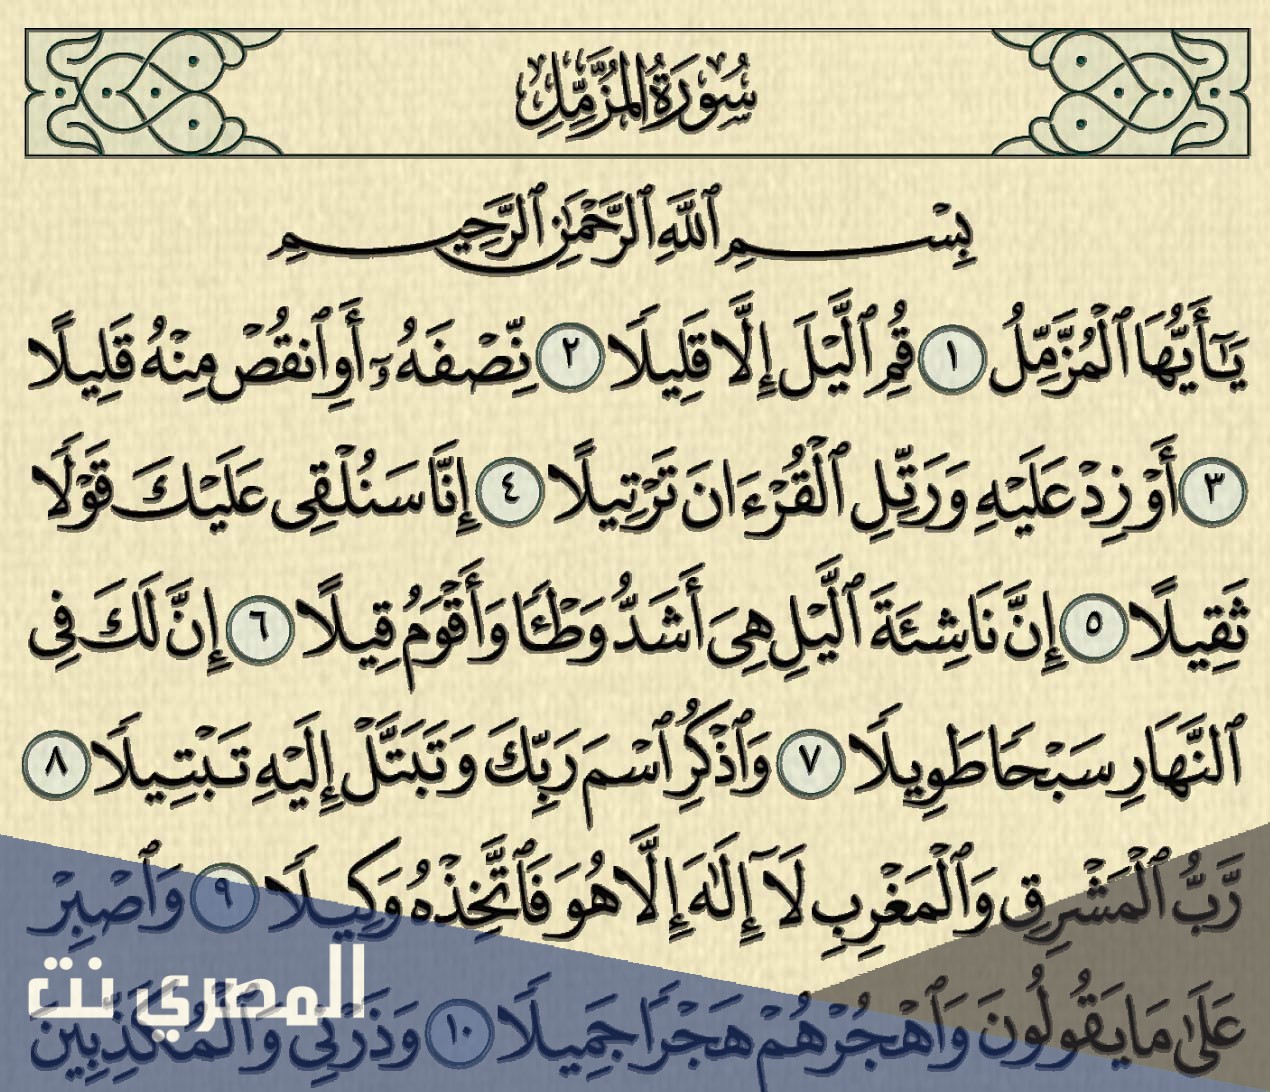 سُورَةُ المُزَّمِّلِ
بِسْمِ ٱللَّهِ ٱلرَّحْمَٰنِ ٱلرَّحِيمِ
يَٰٓأَيُّهَا ٱلْمُزَّمِّلُ ١ قُمِ ٱلَّيْلَ إِلَّا قَلِيلًا ٢ نِّصْفَهُۥٓ أَوِ ٱنقُصْ مِنْهُ قَلِيلًا
٣ أَوْ زِدْ عَلَيْهِ وَرَتِّلِ ٱلْقُرْءَانَ تَرْتِيلًا ٤ إِنَّا سَنُلْقِى عَلَيْكَ قَوْلًا
ثَقِيلًا ٥ إِنَّ نَاشِئَةَ ٱلَّيْلِ هِىَ أَشَدُّ وَطْـًٔا وَأَقْوَمُ قِيلًا ٦ إِنَّ لَكَ فِى
ٱلنَّهَارِ سَبْحًا طَوِيلًا ٧ وَٱذْكُرِ ٱسْمَ رَبِّكَ وَتَبَتَّلْ إِلَيْهِ تَبْتِيلًا ٨
رَّبُّ ٱلْمَشْرِقِ وَٱلْمَغْرِبِ لَآ إِلَٰهَ إِلَّا هُوَ فَٱتَّخِذْهُ وَكِيلًا ٩ وَٱصْبِرْ
عَلَىٰ مَا يَقُولُونَ وَٱهْجُرْهُمْ هَجْرًا جَمِيلًا ١٠ وَذَرْنِى وَٱلْمُكَذِّبِينَ
المصري نت